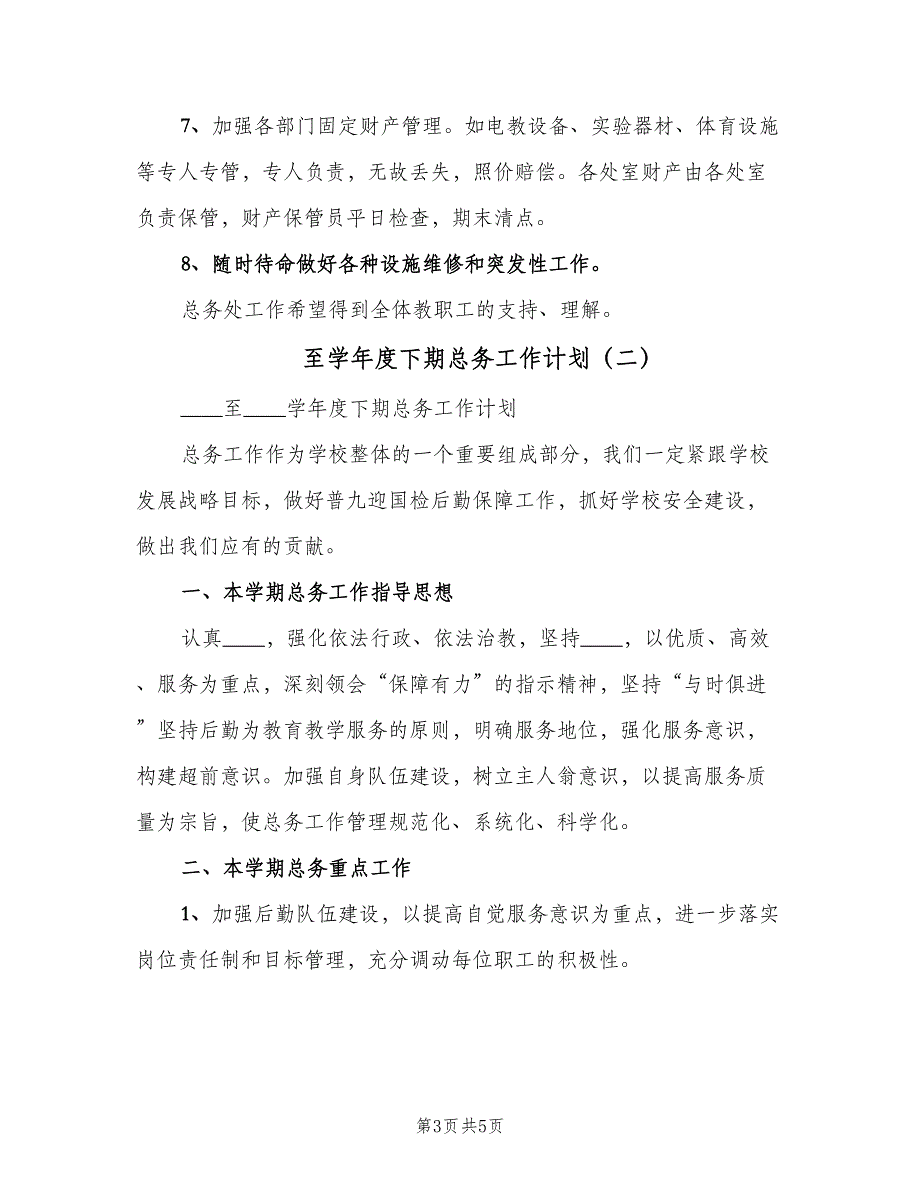 7、加强各部门固定财产管理。如电教设备、实验器材、体育设施
等专人专管，专人负责，无故丢失，照价赔偿。各处室财产由各处室
负责保管，财产保管员平日检查，期末清点。
8、随时待命做好各种设施维修和突发性工作。
总务处工作希望得到全体教职工的支持、理解。
至学年度下期总务工作计划（二）
____至____学年度下期总务工作计划
总务工作作为学校整体的一个重要组成部分，我们一定紧跟学校
发展战略目标，做好普九迎国检后勤保障工作，抓好学校安全建设，
做出我们应有的贡献。
一、本学期总务工作指导思想
认真____，强化依法行政、依法治教，坚持____，以优质、高效
、服务为重点，深刻领会“保障有力”的指示精神，坚持“与时俱进
”坚持后勤为教育教学服务的原则，明确服务地位，强化服务意识，
构建超前意识。加强自身队伍建设，树立主人翁意识，以提高服务质
量为宗旨，使总务工作管理规范化、系统化、科学化。
二、本学期总务重点工作
1、加强后勤队伍建设，以提高自觉服务意识为重点，进一步落实
岗位责任制和目标管理，充分调动每位职工的积极性。
第3页共5页